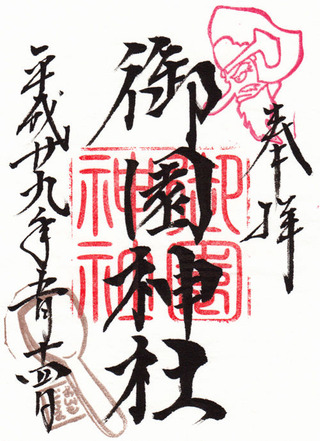 奉拝
御園神社
御園
神社
平成廿九年一月十四日